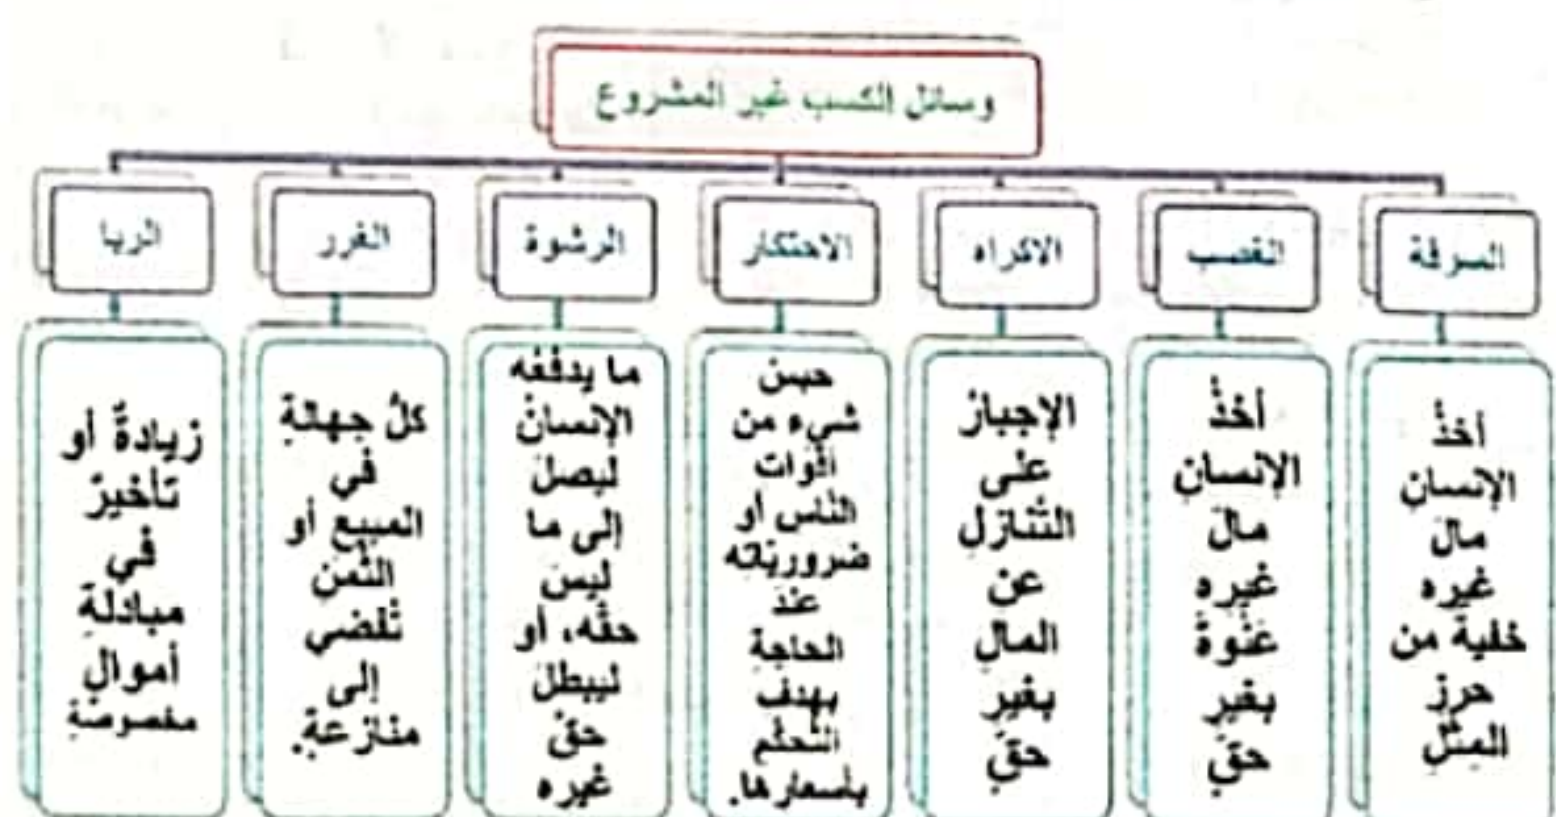 وسائل الكسب غير المشروع
السرقة
الغصب
الاكراه
الاحتكار
الرشوة
الغرر
الربا
أخذُ
الإنسانِ
مالَ
غيره
خفيةً من
حرزِ
المِثْلِ
أخذُ
الإنسانِ
مالَ
غيره
عَنْوةً
بغيرِ
حقٍ
الإجبارُ
على
التَّنازلِ
عن
المالِ
بغيرِ
حقٍ
حبسُ
شيء من
أقوات
النَّاس أو
ضرورياته
عند
الحاجة
بهدف
التَّحكُّم
بأسعارها.
ما يدفعُه
الإنسانُ
ليصلَ
إلى ما
ليسَ
حقَّه، أو
ليبطلَ
حقَّ
غيره
كلُّ جهالةٍ
في
المبيعِ أو
الثَّمنِ
تُفضي
إلى
منازعةٍ.
زيادةٌ أو
تأخيرٌ
في
مبادلةِ
أموالٍ
مخصوصةٍ